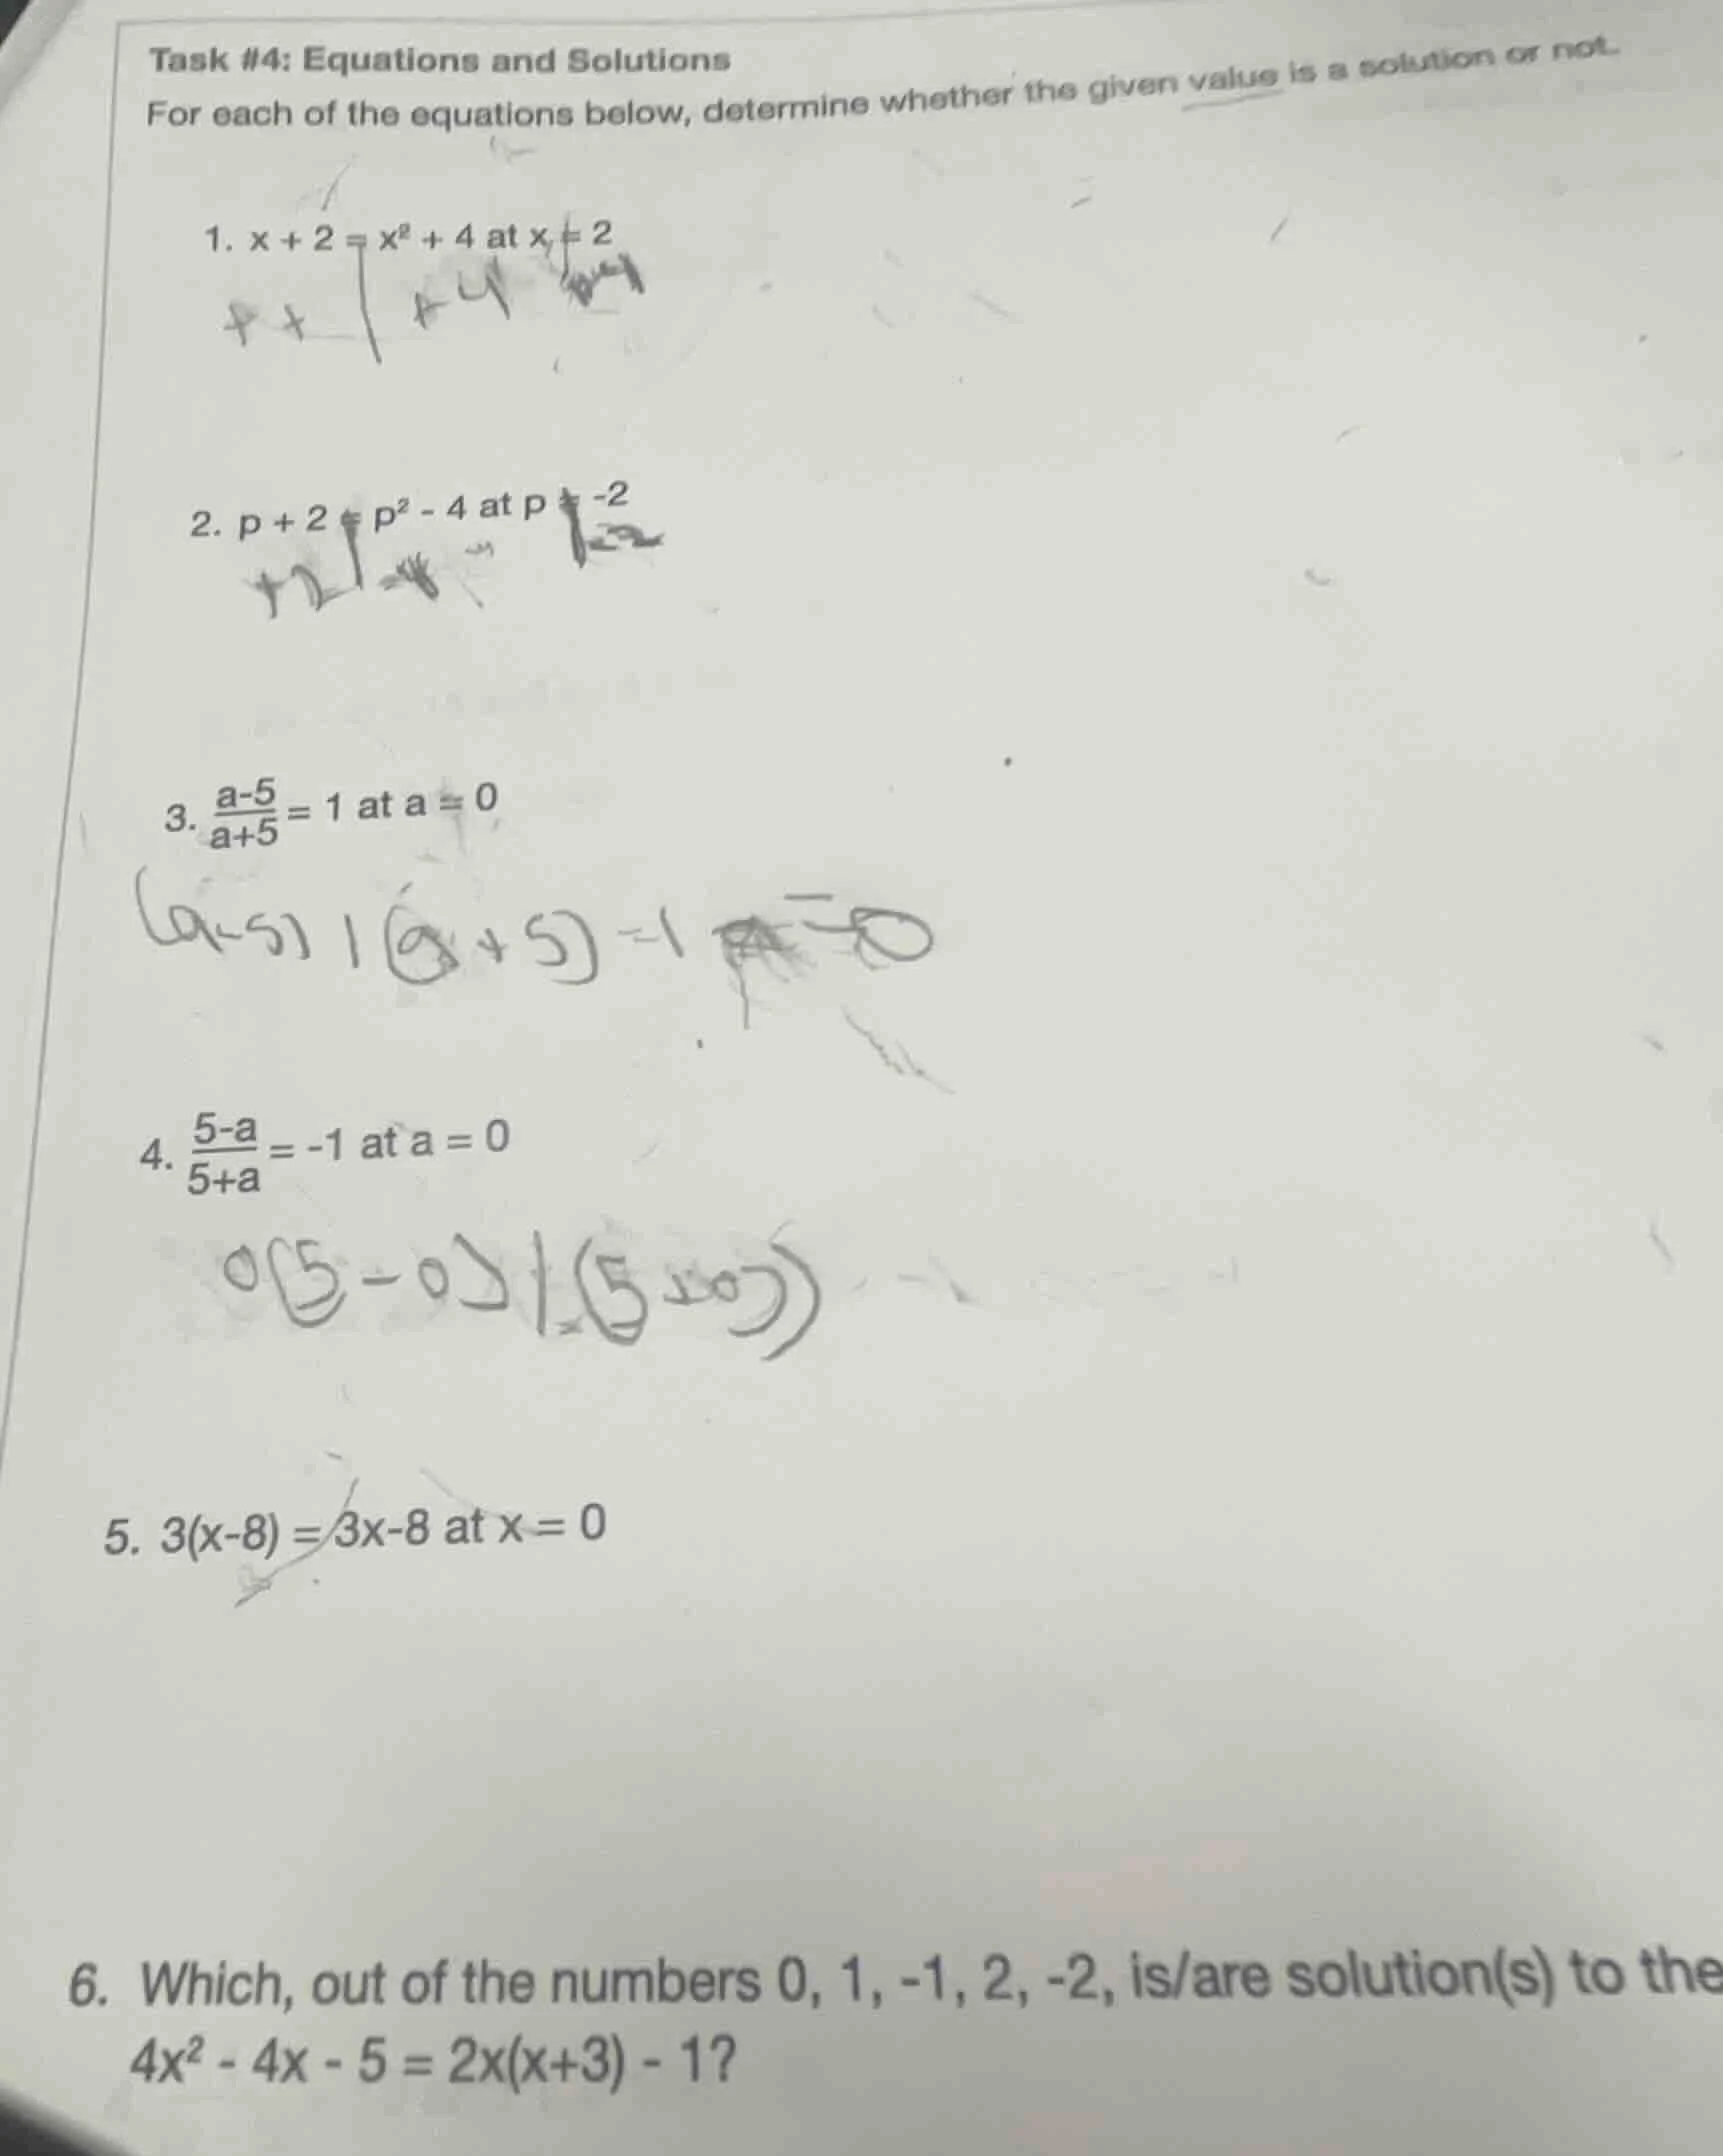 Task #4: Equations and Solutions
For each of the equations below, determine whether the given value is a solution or not.
1. x + 2 = x² + 4 at x = 2
+ + | + 4
2. p + 2 = p² - 4 at p = -2
+2 |
3. a-5/a+5 = 1 at a = 0
(a-5) | (a+5) = 1 = 0
4. 5-a/5+a = -1 at a = 0
0(5-0) | (5+0))
5. 3(x-8) = 3x-8 at x = 0
6. Which, out of the numbers 0, 1, -1, 2, -2, is/are solution(s) to the
4x² - 4x - 5 = 2x(x+3) - 1?